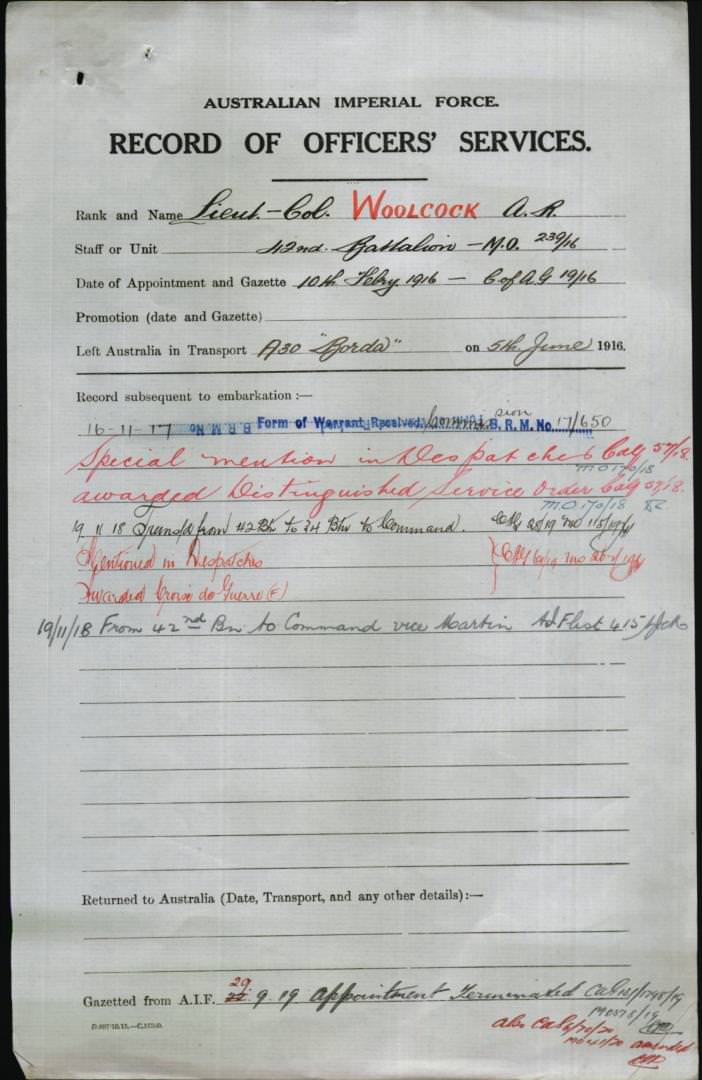 AUSTRALIAN IMPERIAL FORCE.
RECORD OF OFFICERS' SERVICES.
Rank and Name Lieut.-Col. WOOLCOCK A. R.
Staff or Unit 42nd Battalion — M.O. 239/16
Date of Appointment and Gazette 10th Febry 1916 — C of A G 19/16
Promotion (date and Gazette)
Left Australia in Transport A30 "Borda" on 5th June 1916.
Record subsequent to embarkation :—
16-11-17 Form of Warrant Received. B.R.M. No. 17/650
Special mention in Despatches CofAG 57/18.
M.O 170/18
awarded Distinguished Service Order CofAG 57/18.
M.O. 170/18
19 11 18 Transfd from 42 Bn to 24 Bn to Command.
Mentioned in Despatches
Awarded Croix de Guerre (F)
19/11/18 From 42nd Bn to Command vice Martin
Returned to Australia (Date, Transport, and any other details) :—
Gazetted from A.I.F. 29. 9. 19 appointment Terminated
amended